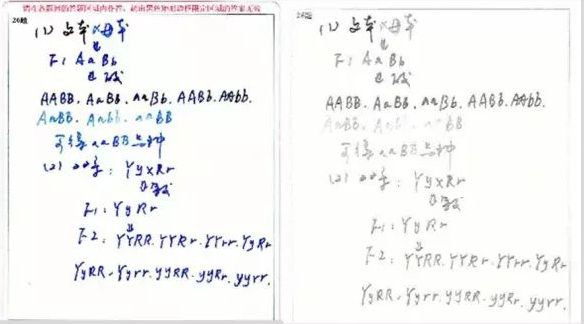 请在各题目的答题区域内作答，超出黑色矩形边框限定区域的答案无效
26题
(1) 父本×母本
F1 AaBb
AABB. AaBb. aaBb. AABb. AAbb.
AaBB. Aabb. aaBB
可得aaBB品种
(2) : YyxRr
F1: YyRr
F2: YYRR. YYRr. YYrr. YyRr
YyRR. Yyrr. yyRR. yyRr. yyrr.
26题
(1) 父本×母本
F1 AaBb
AABB. AaBb. aaBb. AABb. AAbb.
AaBB. Aabb. aaBB
可得aaBB品种
(2) : YyxRr
F1: YyRr
F2: YYRR. YYRr. YYrr. YyRr
YyRR. Yyrr. yyRR. yyRr. yyrr.